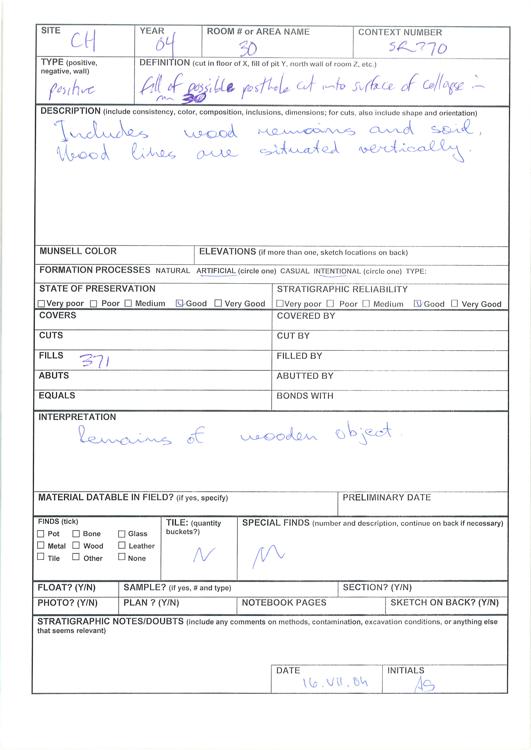 SITE CH
YEAR 04
ROOM # or AREA NAME 30
CONTEXT NUMBER SR770
TYPE (positive, negative, wall) positive
DEFINITION (cut in floor of X, fill of pit Y, north wall of room Z, etc.)
fill of possible posthole cut into surface of collapse in
rm 30
DESCRIPTION (include consistency, color, composition, inclusions, dimensions; for cuts, also include shape and orientation)
Includes wood remains and soil.
Wood lines are situated vertically.
MUNSELL COLOR
ELEVATIONS (if more than one, sketch locations on back)
FORMATION PROCESSES NATURAL ARTIFICIAL (circle one) CASUAL INTENTIONAL (circle one) TYPE:
STATE OF PRESERVATION
STRATIGRAPHIC RELIABILITY
Very poor Poor Medium Good Very Good
Very poor Poor Medium Good Very Good
COVERS
COVERED BY
CUTS
CUT BY
FILLS 371
FILLED BY
ABUTS
ABUTTED BY
EQUALS
BONDS WITH
INTERPRETATION
Remains of wooden object.
MATERIAL DATABLE IN FIELD? (if yes, specify)
PRELIMINARY DATE
FINDS (tick)
Pot Bone Glass
Metal Wood Leather
Tile Other None
TILE: (quantity
buckets?)
N
SPECIAL FINDS (number and description, continue on back if necessary)
N
FLOAT? (Y/N)
SAMPLE? (if yes, # and type)
SECTION? (Y/N)
PHOTO? (Y/N)
PLAN ? (Y/N)
NOTEBOOK PAGES
SKETCH ON BACK? (Y/N)
STRATIGRAPHIC NOTES/DOUBTS (include any comments on methods, contamination, excavation conditions, or anything else
that seems relevant)
DATE
16.VII.04
INITIALS
AS